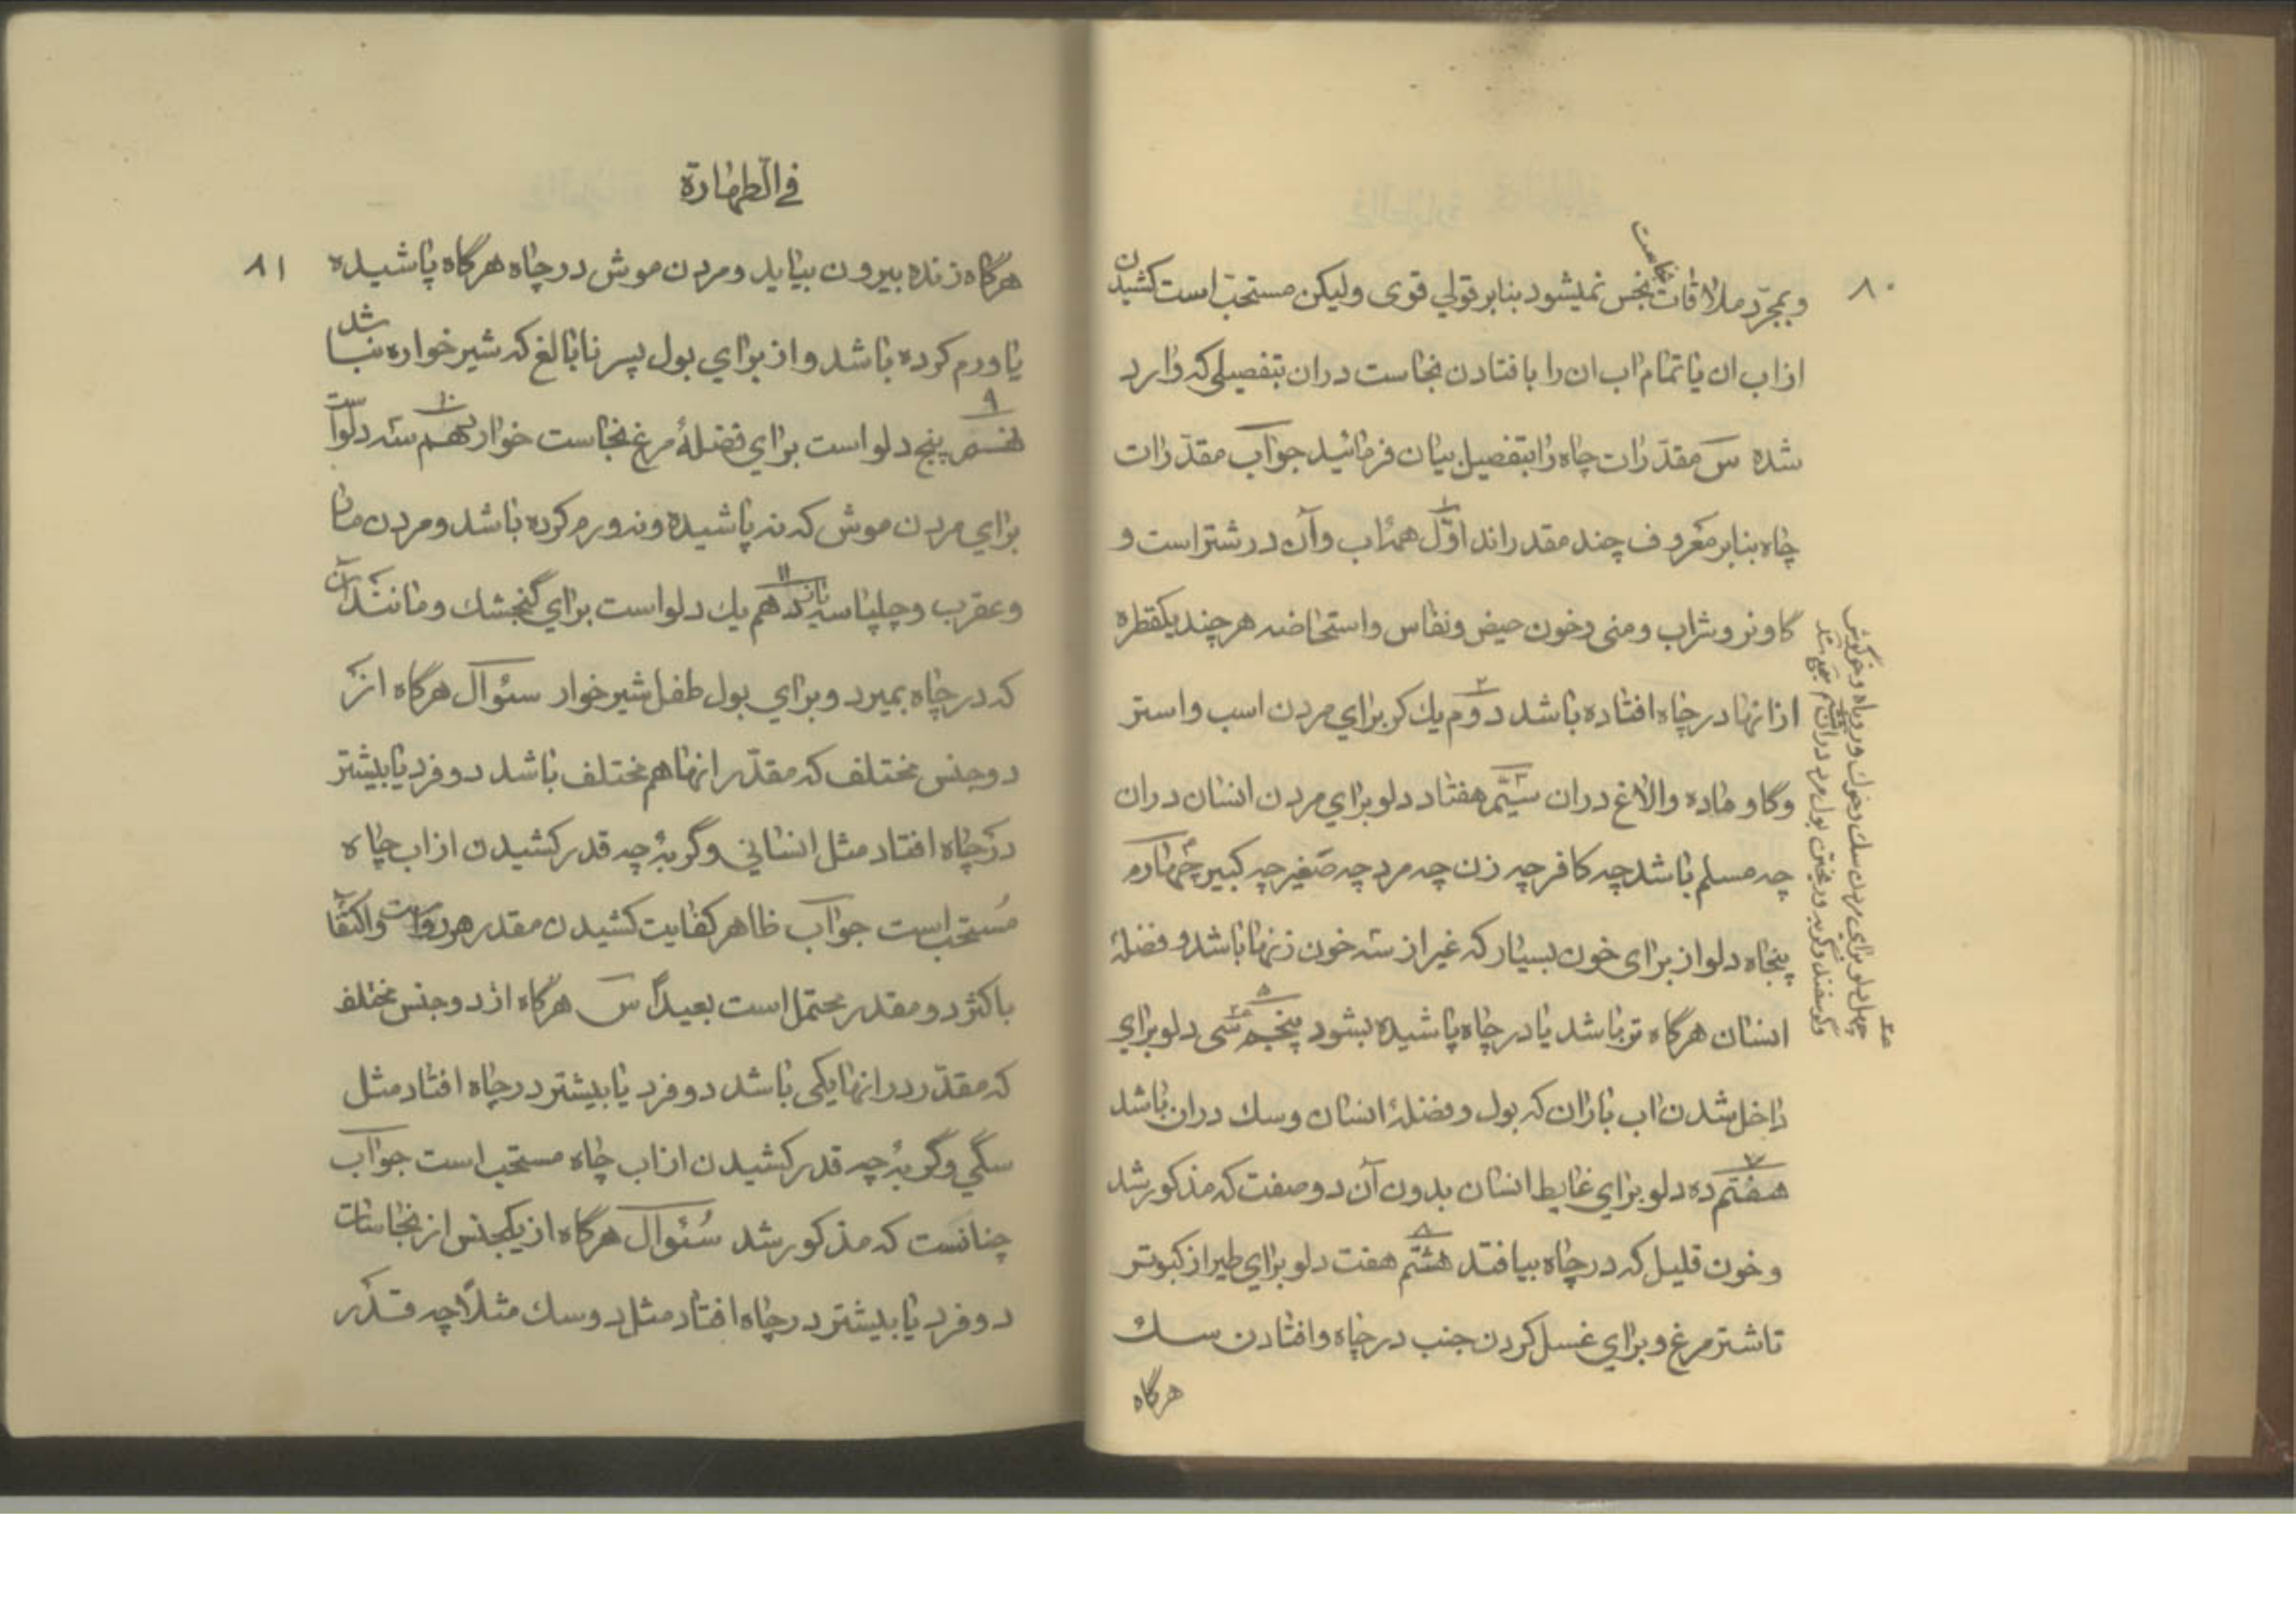 ۸۰
و بمجرّد ملاقات نجاست نجس نمیشود بنابر قولي قوی ولیکن مستحبّ است کشیدن
از اب ان یا تمام اب ان را با فتادن نجاست در ان بتفصیلی که وارد
شده س مقدّرات چاه را بتفصیل بیان فرمائید جواب مقدّرات
چاه بنابر معروف چند مقدر اند اوّل ۱ همه اب و آن در شتر است و
کاو نر و شراب و منی و خون حیض و نفاس و استحاضه هر چند یکقطره
از انها در چاه افتاده باشد دوم ۲ یك کر براي مردن اسب و استر
و کاو ماده و الاغ در ان سیّم ۳ هفتاد دلو براي مردن انسان در ان
چه مسلم باشد چه کافر چه زن چه مرد چه صغیر چه کبیر چهارم ۴
پنجاه دلو از برای خون بسیار که غیر از سه خون زنها باشد و فضلهٔ
انسان هرگاه تر باشد یا در چاه پاشیده بشود پنجم ۵ سی دلو براي
داخل شدن اب باران که بول و فضلهٔ انسان و سك در ان باشد
هفتم ۷ ده دلو براي غایط انسان بدون آن دو صفت که مذکور شد
و خون قلیل که در چاه بیافتد هشتم ۸ هفت دلو براي طیر از کبوتر
تا شتر مرغ و براي غسل کردن جنب در چاه و افتادن سك
هرگاه
چهل دلو براي مردن سك و خوك و روباه و خرگوش
و گوسفند و گربه و ریختن بول مرد در ان
في الطهارة
۸۱
هرگاه زنده بیرون بیاید و مردن موش در چاه هرگاه پاشیده
یا ورم کرده باشد و از براي بول پسر نابالغ که شیر خواره نباشد
نهم ۹ پنج دلو است براي فضلهٔ مرغ نجاست خوار دهم ۱۰ سه دلو است
براي مردن موش که نه پاشیده و نه ورم کرده باشد و مردن مار
و عقرب و چلپاسه یازدهم ۱۱ یك دلو است براي گنجشك و مانند آن
که در چاه بمیرد و براي بول طفل شیر خوار سئوال هرگاه از
دو جنس مختلف که مقدّر انها هم مختلف باشد دو فرد یا بیشتر
در چاه افتاد مثل انساني و گربهٔ چه قدر کشیدن از اب چاه
مستحب است جواب ظاهر کفایت کشیدن مقدر هر دو است و اکتفا
باکثر دو مقدر محتمل است بعیداً س هرگاه از دو جنس مختلف
که مقدّر در انها یکی باشد دو فرد یا بیشتر در چاه افتاد مثل
سگي و گربهٔ چه قدر کشیدن از اب چاه مستحب است جواب
چنانست که مذکور شد سئوال هرگاه از یکجنس از نجاسات
دو فرد یا بیشتر در چاه افتاد مثل دو سك مثلاً چه قدر